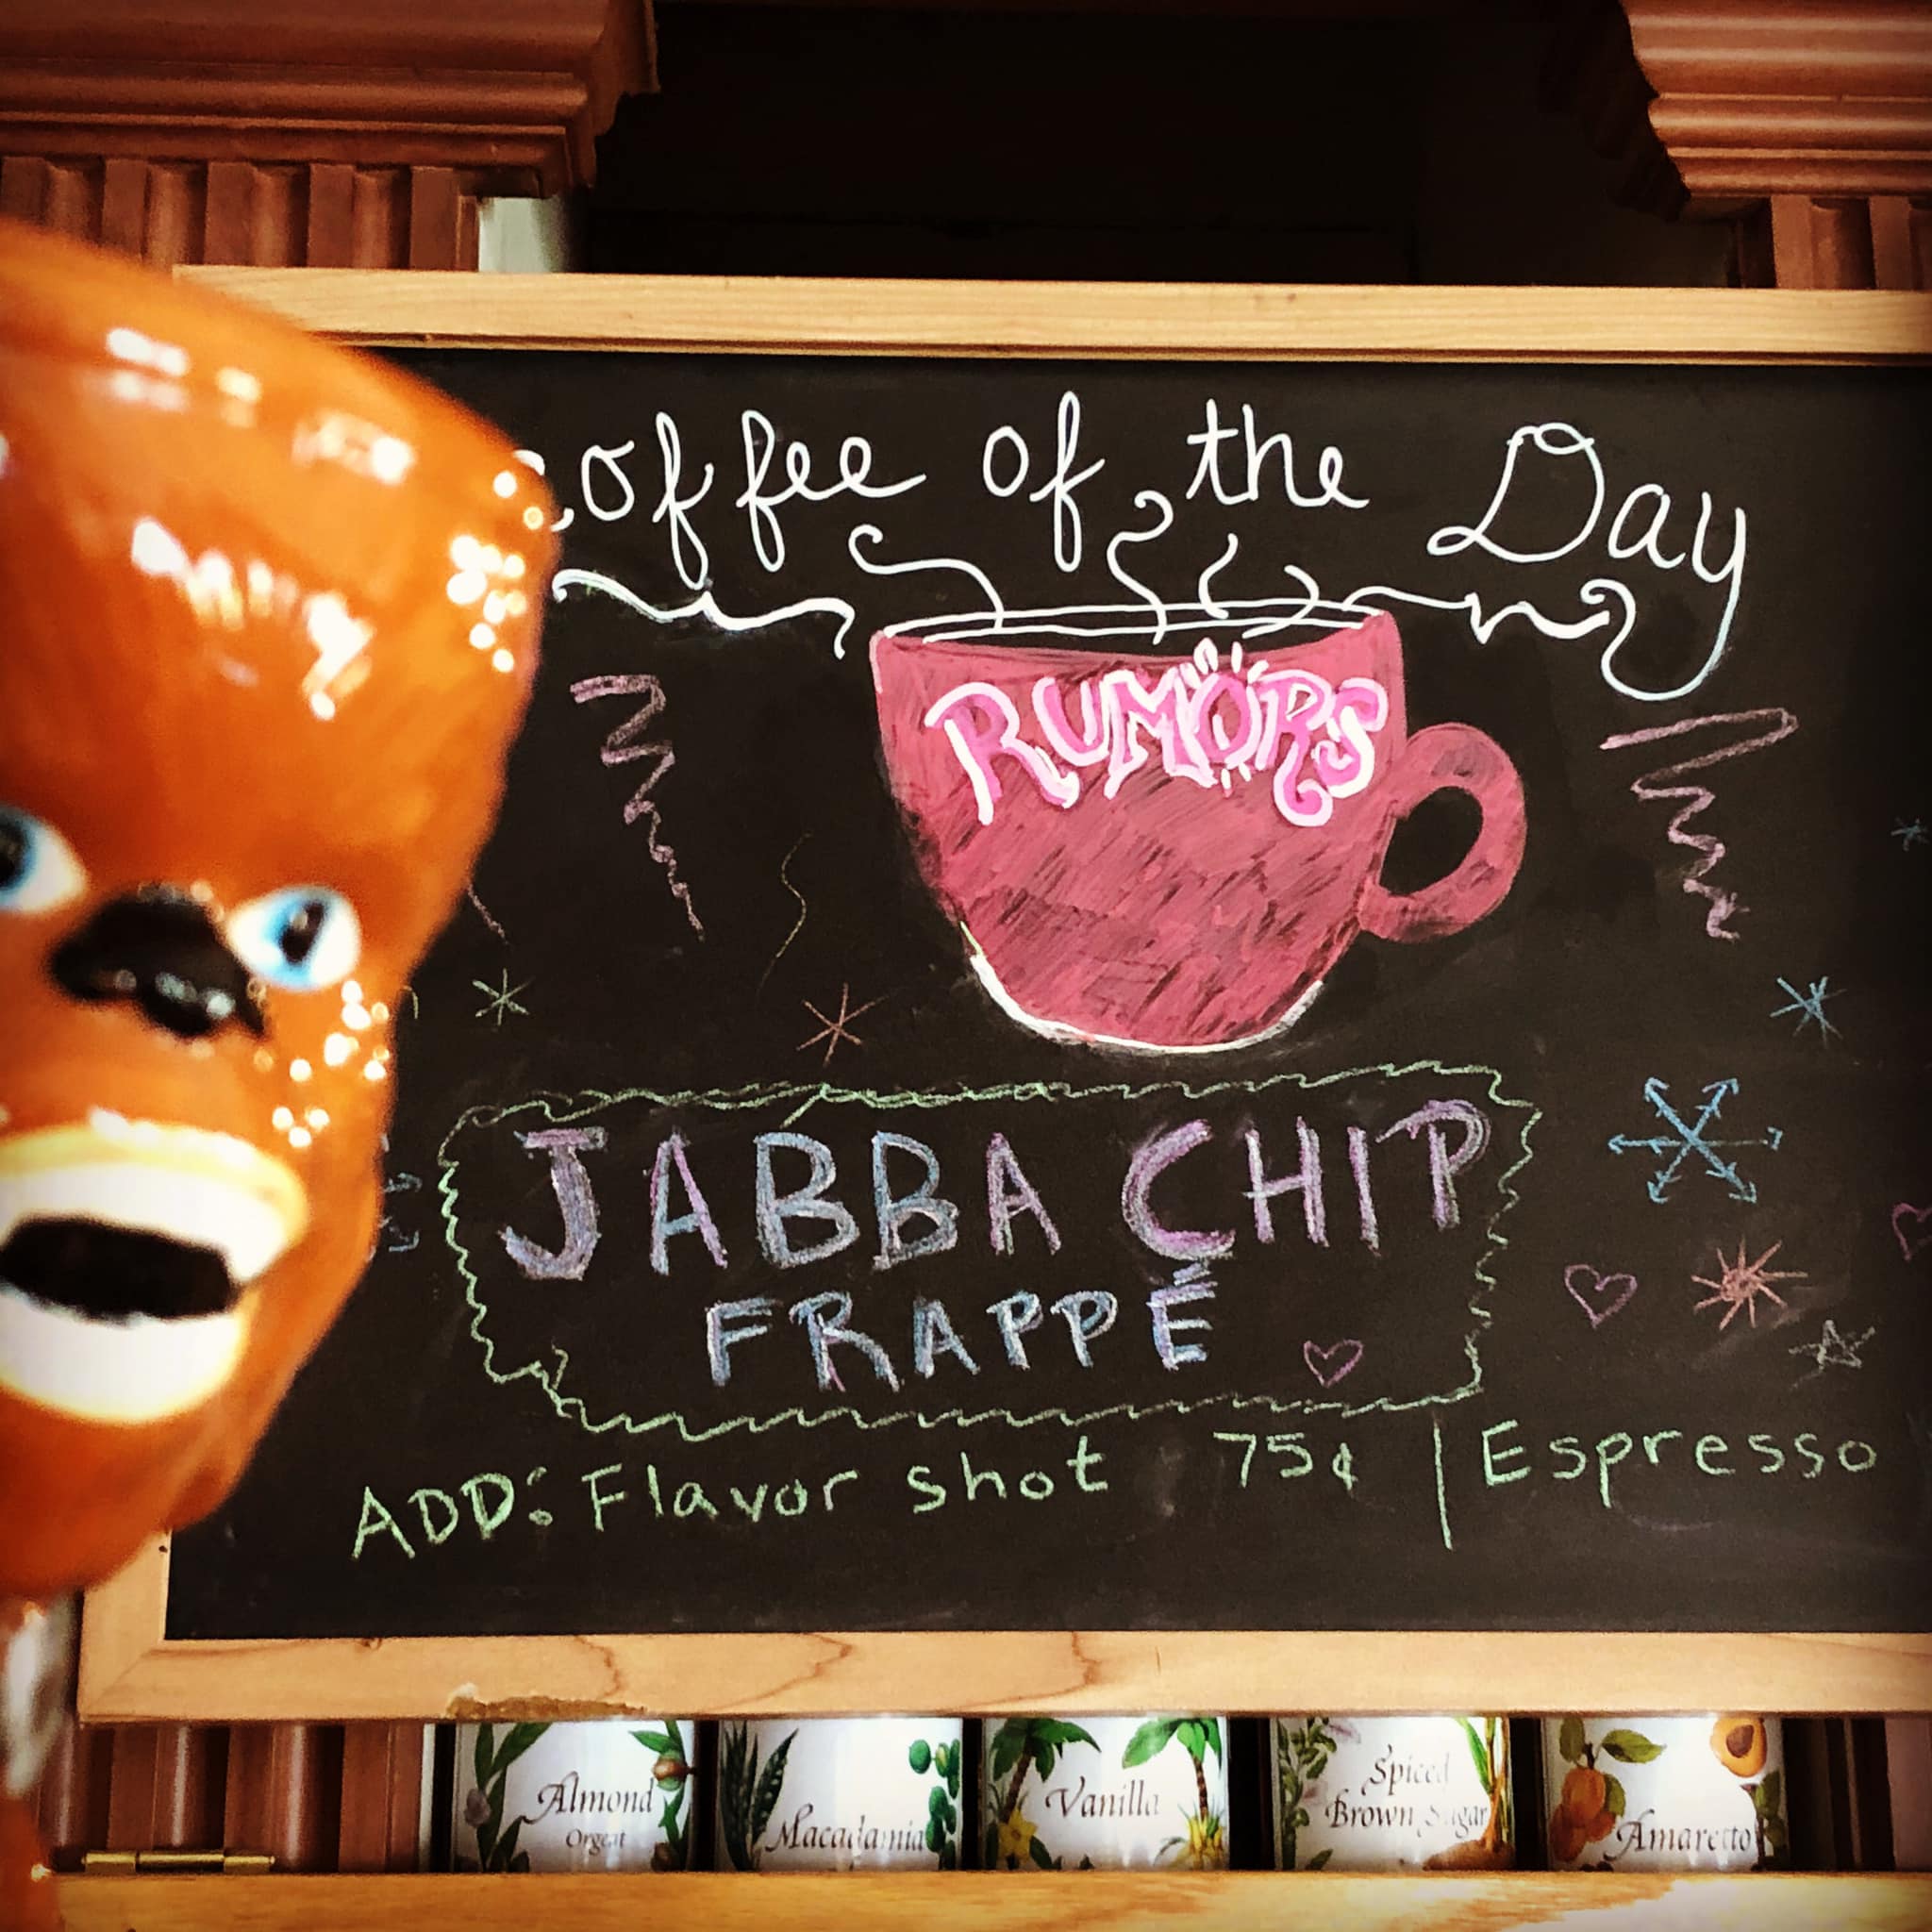 Coffee of the Day
RUMORS
JABBA CHIP
FRAPPÉ
ADD: Flavor shot 75¢ | Espresso
Almond
Orgeat
Macadamia
Vanilla
Spiced
Brown Sugar
Amaretto